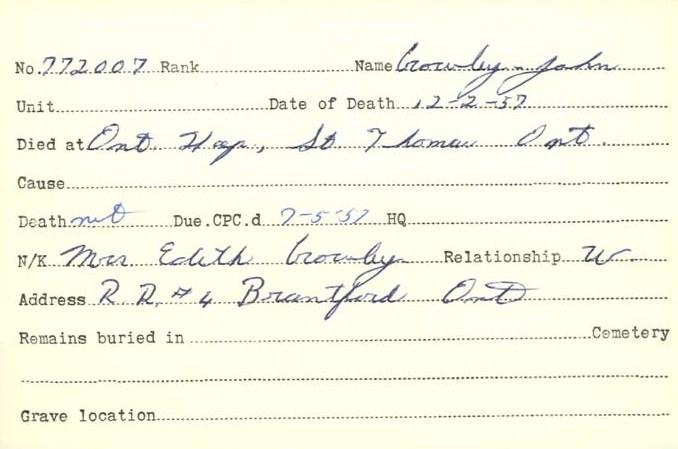 No. 772007 Rank Name Crowley John
Unit Date of Death 12-2-57
Died at Ont. Hosp, St Thomas Ont.
Cause
Death not Due. CPC.d 7-5-57 HQ
N/K Mrs Edith Crowley Relationship W.
Address R.R.#4 Brantford Ont
Remains buried in Cemetery
Grave location